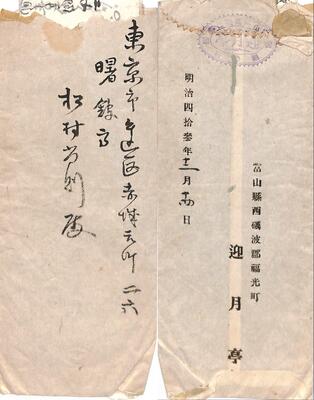 東京市牛込区赤城元町二六
曙館方
松村
殿
明治四拾参年十二月十四日
富山縣西礪波郡福光町
迎月亭